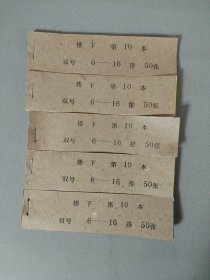 楼下 第10本
双号 6—16 排 50张
楼下 第10本
双号 6—16 排 50张
楼下 第10本
双号 6—16 排 50张
楼下 第10本
双号 6—16 排 50张
楼下 第10本
双号 6—16 排 50张